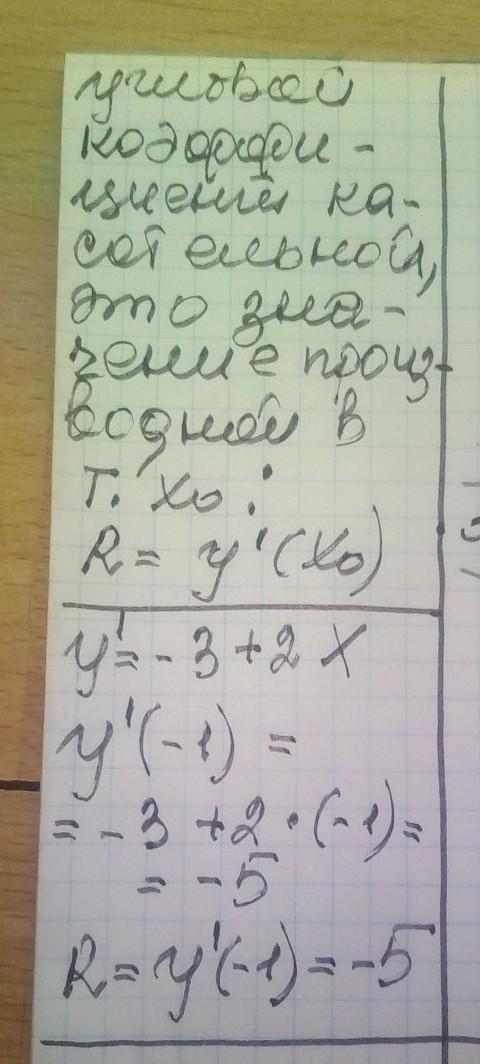 угловой
коэффи-
циент ка-
сательной,
это зна-
чение произ-
водной в
т. x₀:
k = y'(x₀)
y' = -3 + 2x
y'(-1) =
= -3 + 2·(-1) =
= -5
k = y'(-1) = -5